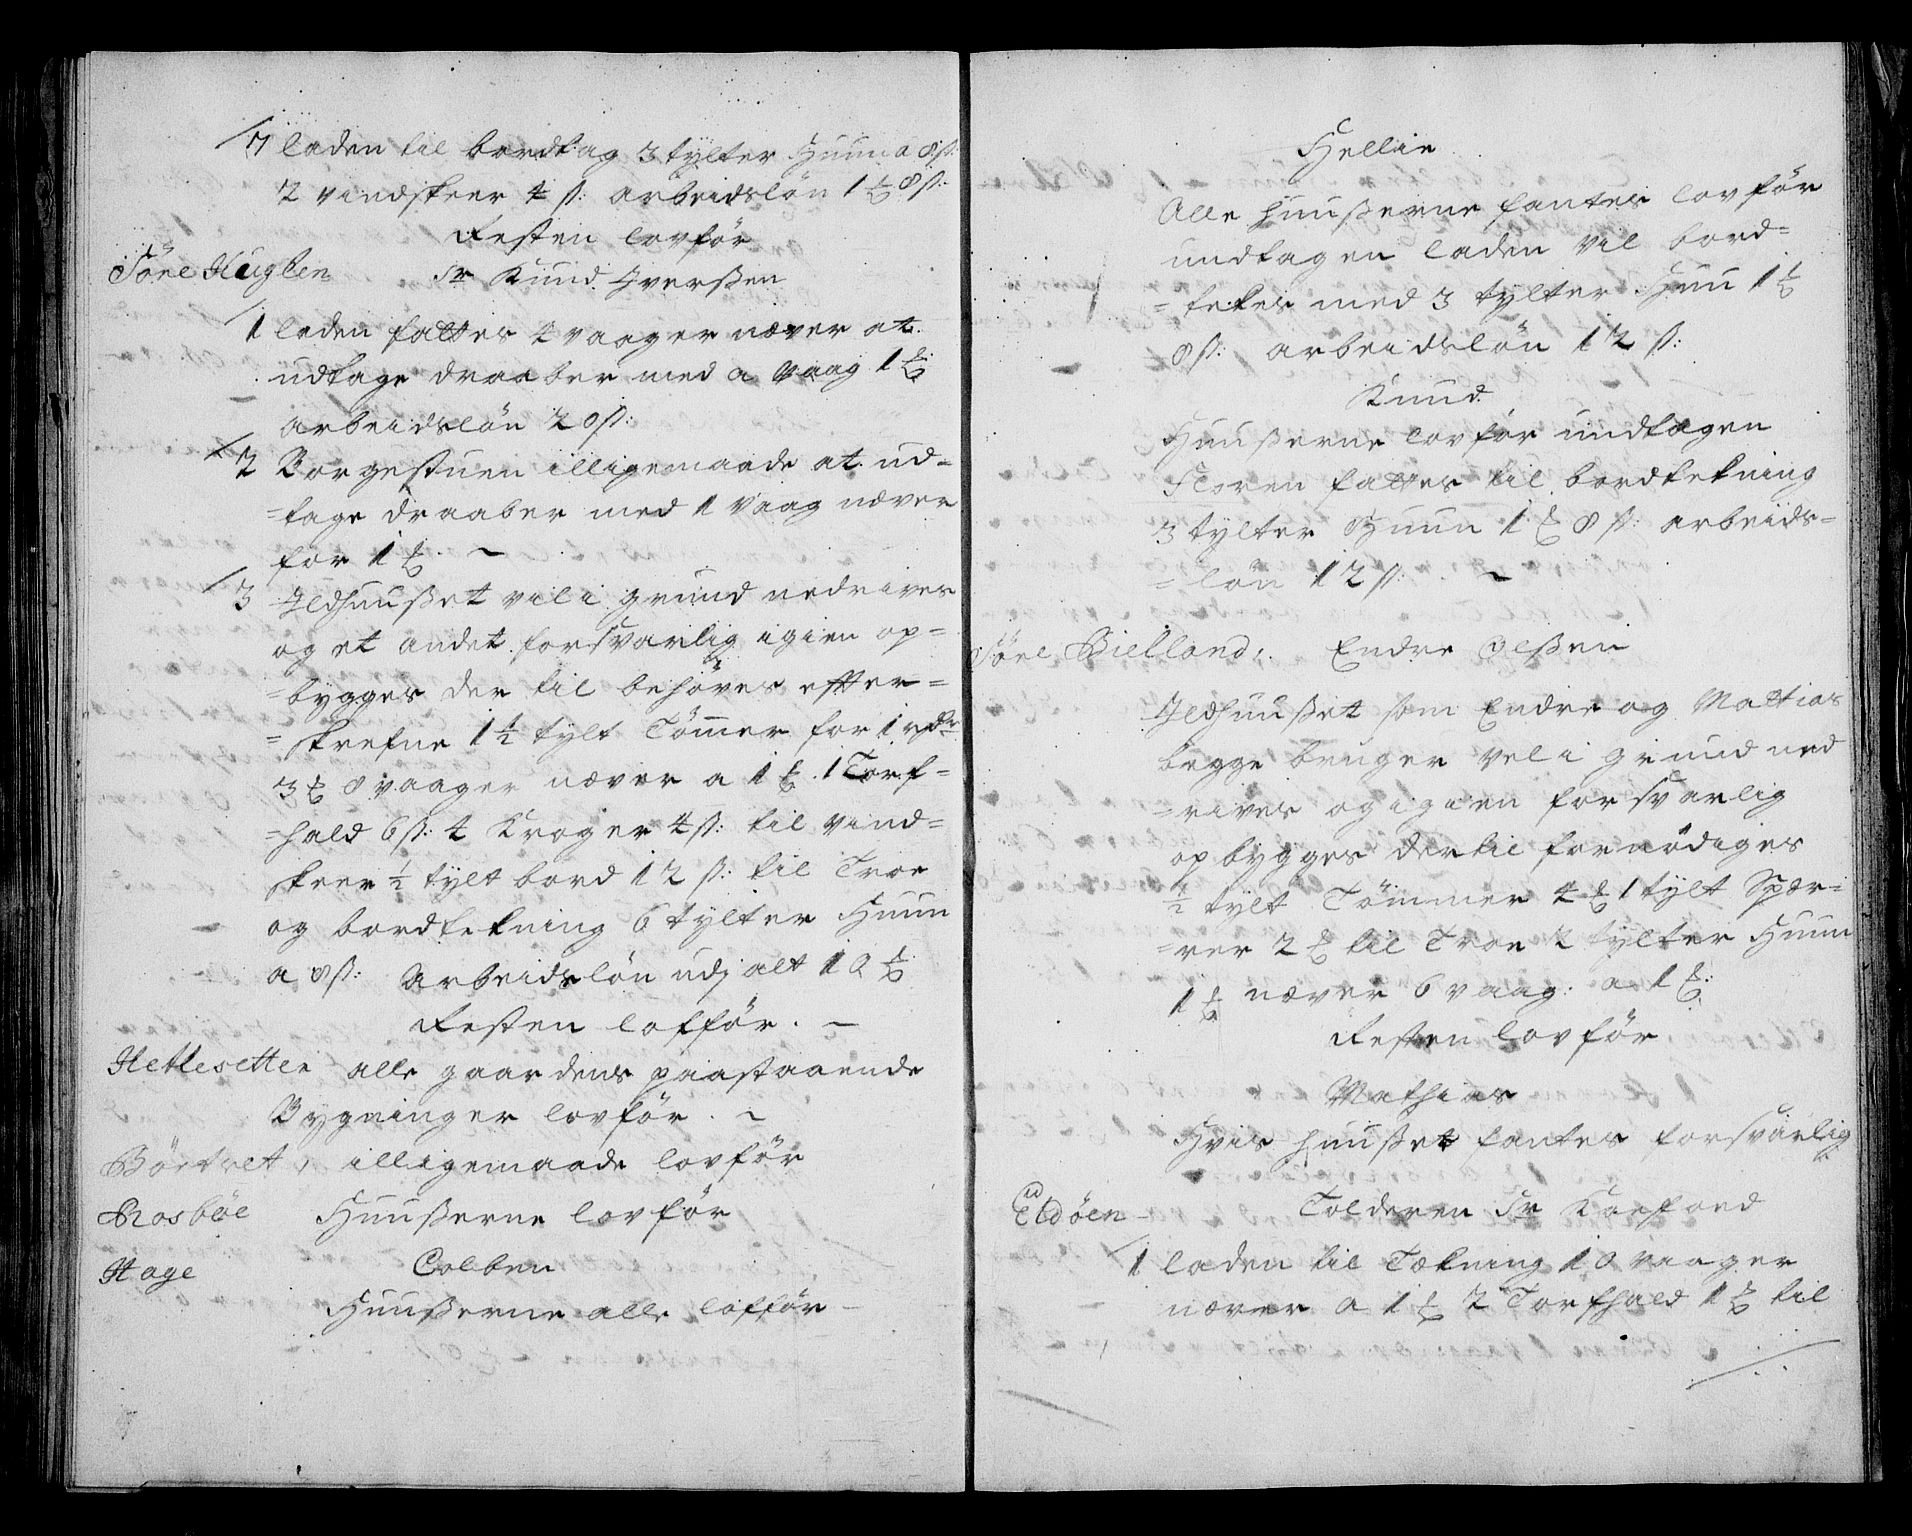 7 laden til bordtag 3 tylter Huun a 8 ß:
2 vindskeer 4 ß: arbeidsløn 1 ℔ 8 ß:
Resten lovfør
Søre Huglen Sr Knud Iverßen
1 laden fattes 4 vaager næver at
udtage draaber med a vaag 1 ℔
arbeidsløn 20 ß:
2 Borgestuen illigemaade at ud=
=tage draaber med 1 vaag næver
for 1 ℔. ~
3 Ildhuußet vil i grund nedrives
og et andet forsvarlig igien op=
=bygges der til behøves effter=
=skrefne 1½ tylt Tømmer for 1 rdr
3 ℔ 8 vaager næver a 1 ℔. 1 Torf=
=hald 6 ß: 4 Kroger 4 ß: til vind=
skeer ½ tylt bord 12 ß: til Troe
og bordtekning 6 tylter Huun
a 8 ß: Arbeidsløn udj alt 10 ℔
Resten lofför. ~
Hetlesetter alle gaardens paastaaende
Bygninger lovför. ~
Börtvet, illigemaade lovför
Rosbøe Huußerne lovför
Hage Colben
Huußerne alle lofför ~
Hellie
Alle huußerne fantes lovför
undtagen laden vil bord=
=tekes med 3 tylter Huu 1 ℔
8 ß: arbeidsløn 12 ß:
Knud
Huußerne lovför undtagen
Floren fattes til bordtekning
3 tylter Huun 1 ℔ 8 ß: arbeids=
=løn 12 ß: ~
Søre Bielland, Endre Olßen
Ildhuußet som Endre og Mattias
begge bruger vel i grund ned
=rives og igien forsvarlig
opbygges dertil fornødiges
½ tylt Tømmer 4 ℔ 1 tylt Spær=
=rer 2 ℔ til Troe 2 tylter Huun
1 ℔ næver 6 vaag: a 1 ℔:
Resten lovför
Mathias
Hvis huußet fantes forsvarlig
Eldøen Tolderen Sr Koefoed
1 laden til Tækning 10 vaager
næver a 1 ℔ 2 Torfhald 1 ℔ til